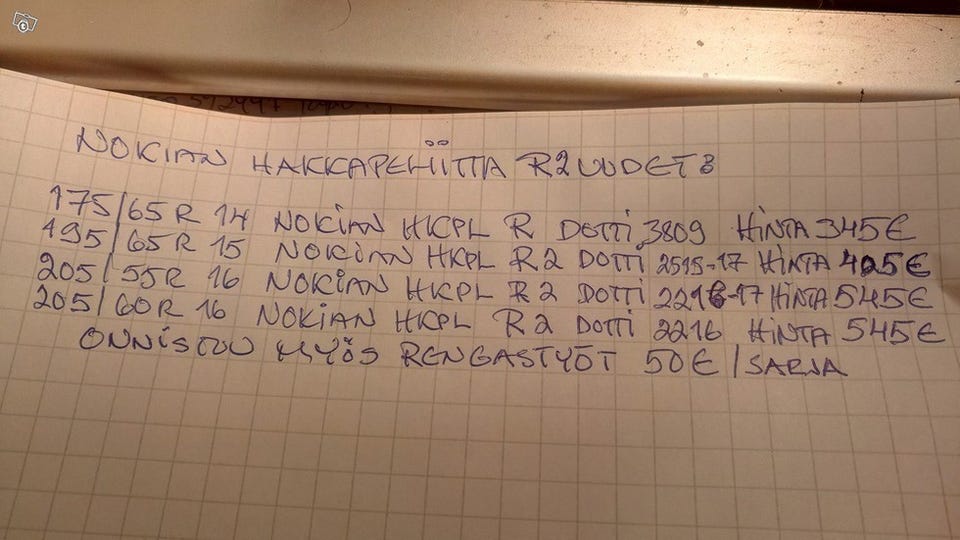 NOKIAN HAKKAPELIITTA R2 UUDET:
175/65R 14 NOKIAN HKPL R DOTTI 3809 HINTA 345€
195/65R 15 NOKIAN HKPL R2 DOTTI 2515-17 HINTA 425€
205/55R 16 NOKIAN HKPL R2 DOTTI 2216-17 HINTA 545€
205/60R 16 NOKIAN HKPL R2 DOTTI 2216 HINTA 545€
ONNISTUU MYÖS RENGASTYÖT 50€/SARJA